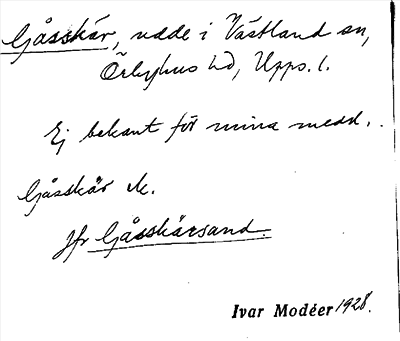 Gåsskär, udde i Västland sn,
Örbyhus hd, Upps. l.
Ej bekant för mina medd.
Gåsskär ek.
Jfr Gåsskärsand.
Ivar Modéer 1928.